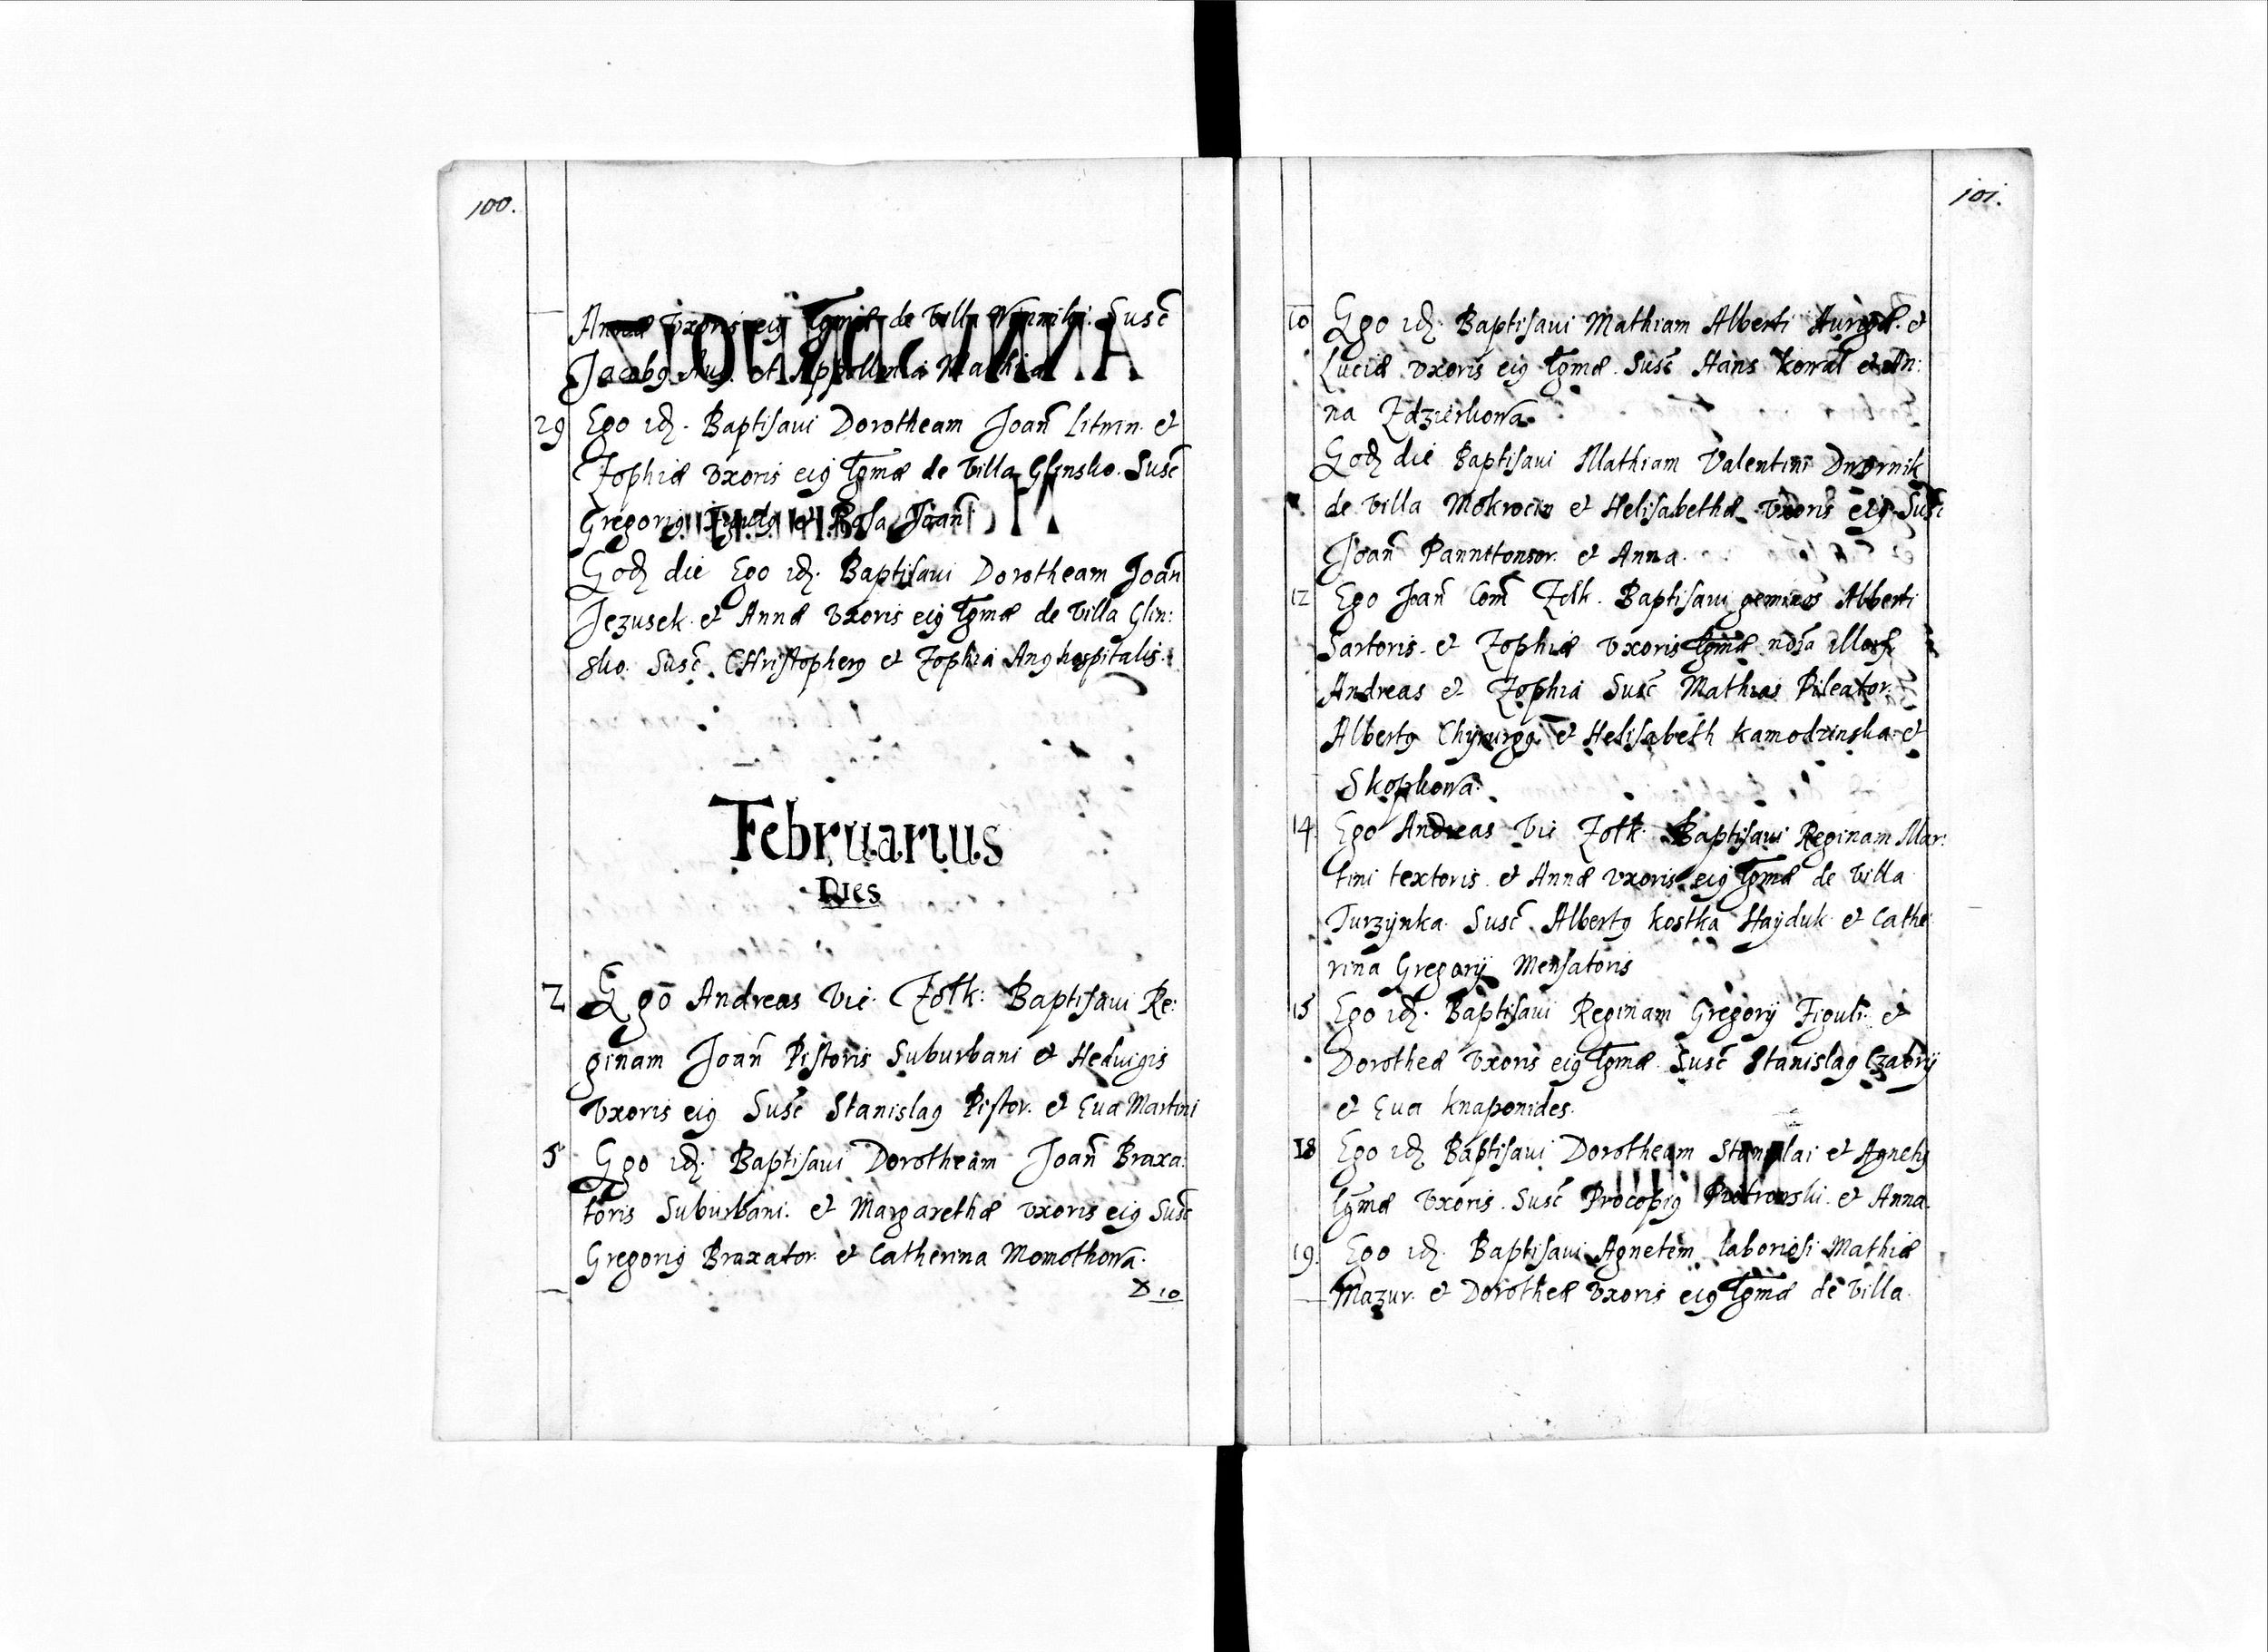 100.
Annæ Vxoris eiꝰ lgmæ de Villa Susc̃
Jacobꝰ et Appollonia Mathiæ
29 Ego idẽ. Baptisaui Dorotheam Joañ Litwin. et
Zophiæ Vxoris eiꝰ lgmæ de Villa Glinsko. Susc̃
Gregoriꝰ et Rosa Joañ
Eodẽ die Ego idẽ. Baptisaui Dorotheam Joañ
Jezusek. et Annæ Vxoris eiꝰ lgmæ de Villa Glin:
sko. Susc̃. CHristopherꝰ et Zophia hospitalis.
Februarius
Dies
2 Ego Andreas Vic. Zolk: Baptisaui Re:
ginam Joañ Pistoris Suburbani et Heduigis
Vxoris eiꝰ Susc̃ Stanislaꝰ Pistor. et Eua Martini
5 Ego idẽ. Baptisaui Dorotheam Joañ Braxa:
toris Suburbani. et Margarethæ vxoris eiꝰ Susc̃
Gregoriꝰ Braxator. et Catherina Momotkowa.
D 10
101.
10 Ego idẽ. Baptisaui Mathiam Alberti Aurigæ. et
Luciæ vxoris eiꝰ lgmæ. Susc̃ Hans Kowal et An:
na Zdzierkowa.
Eodẽ die Baptisaui Mathiam Valentini Dwornik
de Villa Mokrocin et Helisabethæ Vxoris eiꝰ. Susc̃
Joañ Pannitonsor. et Anna.
12 Ego Joañ Com̃ Zolk. Baptisaui geminos Alberti
Sartoris. et Zophiæ Vxoris lgmæ noĩa illorꝝ
Andreas et Zophia Susc̃ Mathias Pileator.
Albertꝰ Chyrurgꝰ. et Helisabeth Kamodzinska. et
Skopkowa.
14. Ego Andreas Vic Zolk. Baptisaui Reginam Mar:
tini textoris. et Annæ vxoris eiꝰ lgmæ de Villa
Turzynka. Susc̃. Albertꝰ Kostka Hayduk. et Cathe
rina Gregorij Mensatoris
15 Ego idẽ. Baptisaui Reginam Gregorij Figuli. et
Dorotheæ Vxoris eiꝰ lgmæ. Susc̃ Stanislaꝰ Czaorij
et Eua Knapowides.
18 Ego idẽ Baptisaui Dorotheam Stanislai et Agnetꝭ
lgmæ Vxoris. Susc̃ Procopiꝰ Piotrowski. et Anna.
19. Ego idẽ. Baptisaui Agnetem laboriosi Mathiæ
Mazur. et Dorotheæ Vxoris eiꝰ lgmæ de Villa.